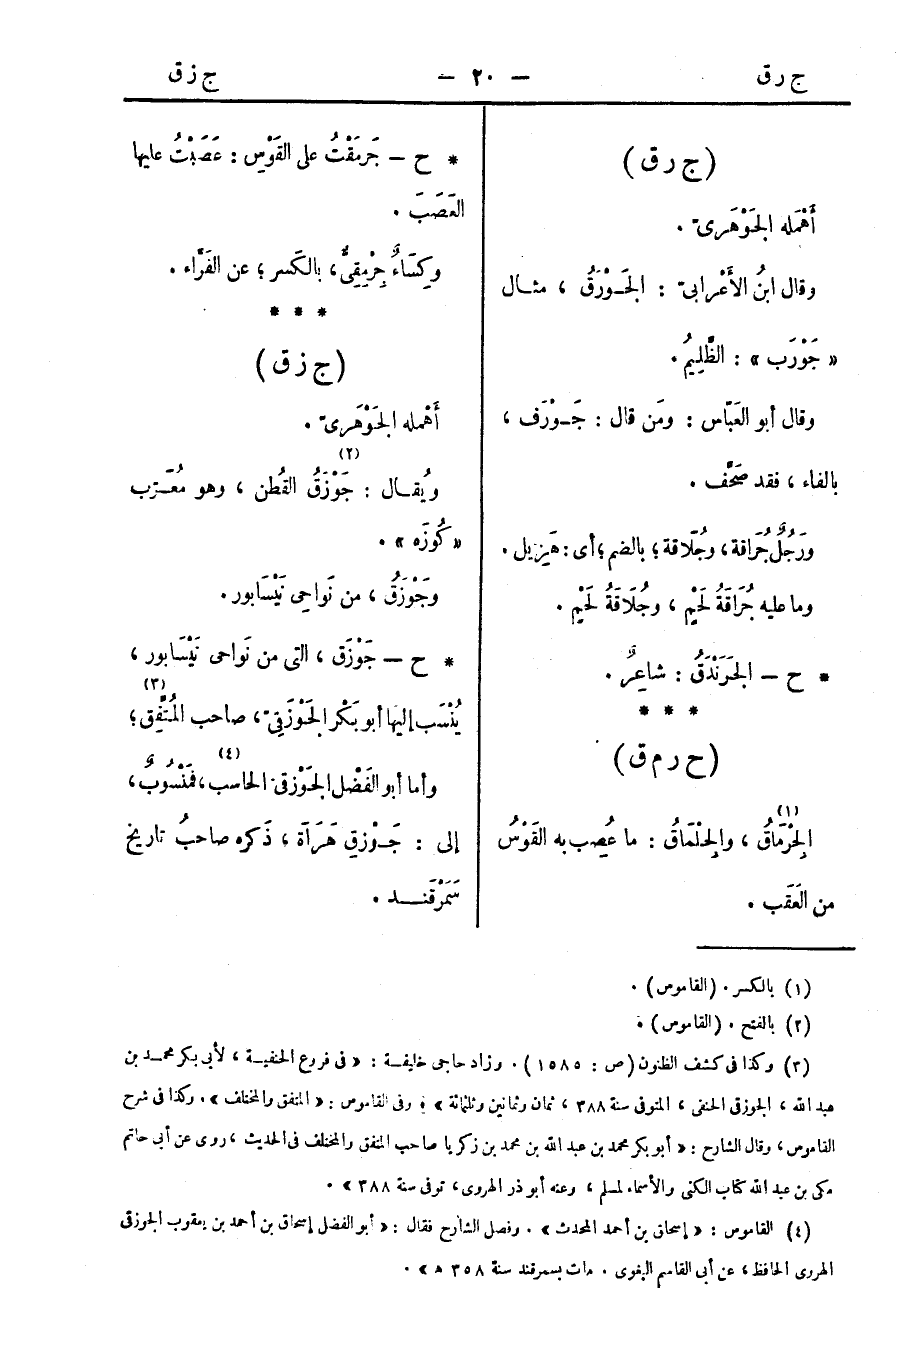 ج رق
— ٢٠ —
ج زق
(ج رق)
أَهْمَله الجَوْهَرىّ .
وقال ابنُ الأَعْرابىّ : الجَـوْرَقُ ، مثـال
« جَوْرَب » : الظَّلِيمُ .
وقال أبو العَبّاس : ومَن قال : جَـوْرَف ،
بالفاء ، فقد صَحَّف .
ورَجُلٌ جُرَاقة ، وجُلَاقة ؛ بالضم ؛ أى : هَزِيل .
وما عليه جُرَاقَةُ لَحْمٍ ، وجُلَاقَةُ لَحْمٍ .
* ح — الجَرَنْدَقُ : شاعِرٌ .
* * *
(ح رم ق)
الجِرْمَاقُ (١) ، والجِلْمَاقُ : ما عُصِب به القَوْسُ
من العَقَب .
* ح — جَرمَقْتُ على القَوْسِ : عَصَبْتُ عليها
العَصَبَ .
وكِسَاءٌ جِرْمِقِىٌّ ، بالكَسر ؛ عن الفَرَّاء .
* * *
(ج زق)
أَهْمله الجَوْهَرىّ .
ويُقـال : جَوْزَقُ (٢) القُطن ، وهو مُعَـرّب
« كُوزَه » .
وجَوْزَقُ ، من نَواحِى نَيْسَابور .
* ح — جَوْزَق ، التى من نَواحى نَيْسَابور ،
يُنْسَب إليها أبو بَكْر الجَوْزَقىّ ، صاحب المُتَّفِق (٣) ؛
وأما أبو الفَضْل الجَوْزقىّ الحاسب (٤) ، فمَنْسُوبٌ ،
إلى : جَـوْزقِ هَرَاَة ، ذَكره صاحبُ تاريخ
سَمَرْقَنـــد .
(١) بالكسر . (القاموس) .
(٢) بالفتح . (القاموس) .
(٣) وكذا فى كشف الظنون (ص : ١٥٨٥) . وزاد حاجى خليفـة : « فى فروع الحنفيـة ، لأبى بكر محمـد بن
عبد الله ، الجوزقى الحنفى ، المتوفى سنة ٣٨٨ ، ثمان وثمانين وثلثمائة » وفى القاموس : « المتفق والمختلف » . وكذا فى شرح
القاموس ، وقال الشارح : « أبو بكر محمد بن عبد الله بن محمد بن زكريا صاحب المتفق والمختلف فى الحديث ، روى عن أبى حاتم
مكى بن عبد الله كتاب الكنى والأسماء لمسلم ، وعنه أبو ذر الهروى ، توفى سنة ٣٨٨ » .
(٤) القاموس : « إسحاق بن أحمد المحدث » . وفصل الشارح فقال : « أبو الفضل إسحاق بن أحمد بن يعقوب الجوزقى
الهروى الحافظ ، عن أبى القاسم البغوى . مات بسمرقند سنة ٣٥٨ هـ » .